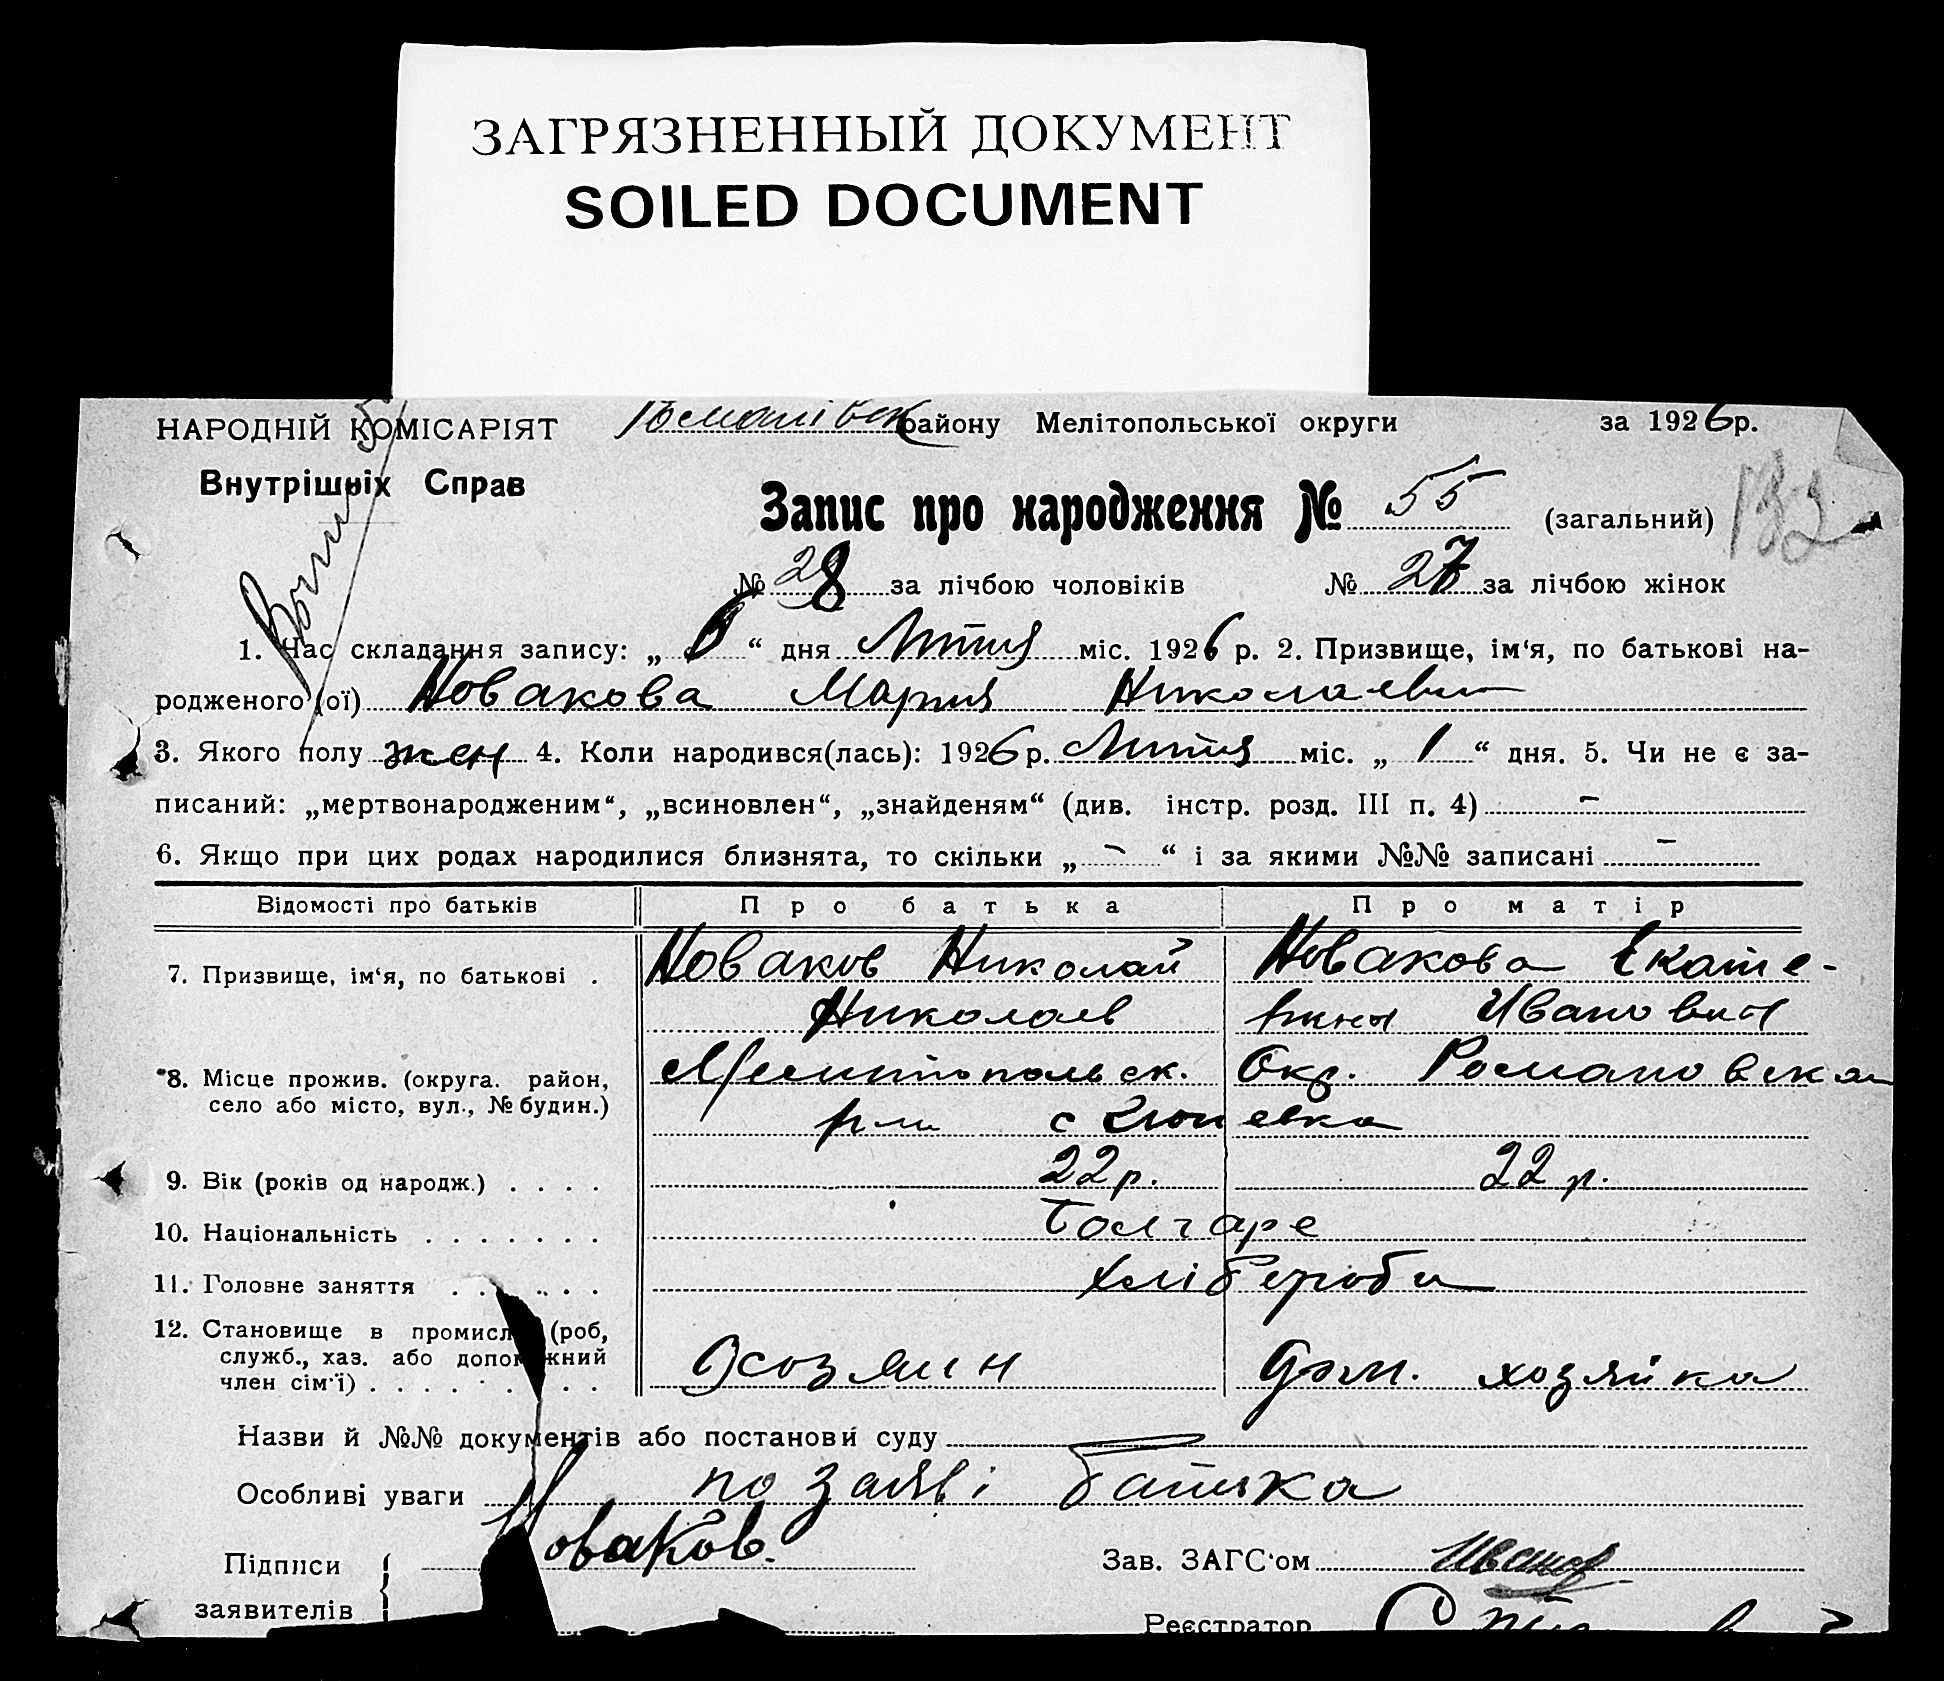 ЗАГРЯЗНЕННЫЙ ДОКУМЕНТ
SOILED DOCUMENT
НАРОДНІЙ КОМІСАРІЯТ
Внутрішніх Справ
району Мелітопольської округи за 1926р.
Запис про народження № 55 (загальний)
132
№ 28 за лічбою чоловіків № 27 за лічбою жінок
1. Час складання запису: „ “ дня Лютня міс. 1926 р. 2. Призвище, ім‘я, по батькові на-
родженого (ої) Новакова Мария Николаевн
3. Якого полу жен 4. Коли народився(лась): 1926 р. Лютня міс. „ 1 “ дня. 5. Чи не є за-
писаний: „мертвонародженим“, „всиновлен“, „знайденям“ (див. інстр. розд. III п. 4) –
6. Якщо при цих родах народилися близнята, то скільки „ – “ і за якими №№ записані –
Відомості про батьків Про батька Про матір
7. Призвище, ім‘я, по батькові . Новаков Николай Новакова Екате-
Николаев рина Ивановна
8. Місце прожив. (округа. район, Мелитопольск. Окр. Романовска
село або місто, вул., № будин.) с
9. Вік (років од народж.) . . . . 22р. 22 р.
10. Національність . . . . . . . Болгаре
11. Головне заняття . . . . . . хлібероби
12. Становище в промисл (роб,
служб., хаз. або допоможний
член сім‘ї) . . . . . . . . . Хозяин Дом. хозяйка
Назви й №№ документів або постанови суду
Особливі уваги по заяві батька
Підписи Новаков. Зав. ЗАГС‘ом Иванов
заявителів
Реєстратор